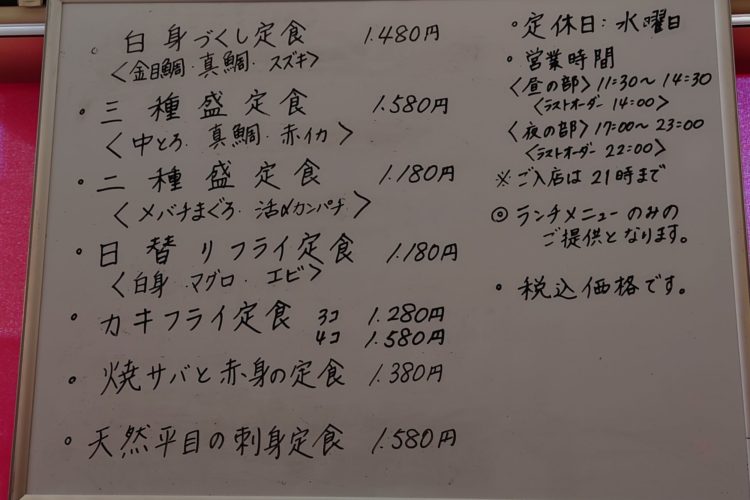 白身づくし定食 1.480円
〈金目鯛・真鯛・スズキ〉
・三種盛定食 1.580円
〈中とろ・真鯛・赤イカ〉
・二種盛定食 1.180円
〈メバチまぐろ・活〆カンパチ〉
・日替りフライ定食 1.180円
〈白身・マグロ・エビ〉
・カキフライ定食 3コ 1.280円
4コ 1.580円
・焼サバと赤身の定食 1.380円
・天然平目の刺身定食 1.580円
・定休日：水曜日
・営業時間
〈昼の部〉11:30〜14:30
〈ラストオーダー 14:00〉
〈夜の部〉17:00〜23:00
〈ラストオーダー 22:00〉
※ご入店は21時まで
◎ランチメニューのみの
ご提供となります。
・税込価格です。